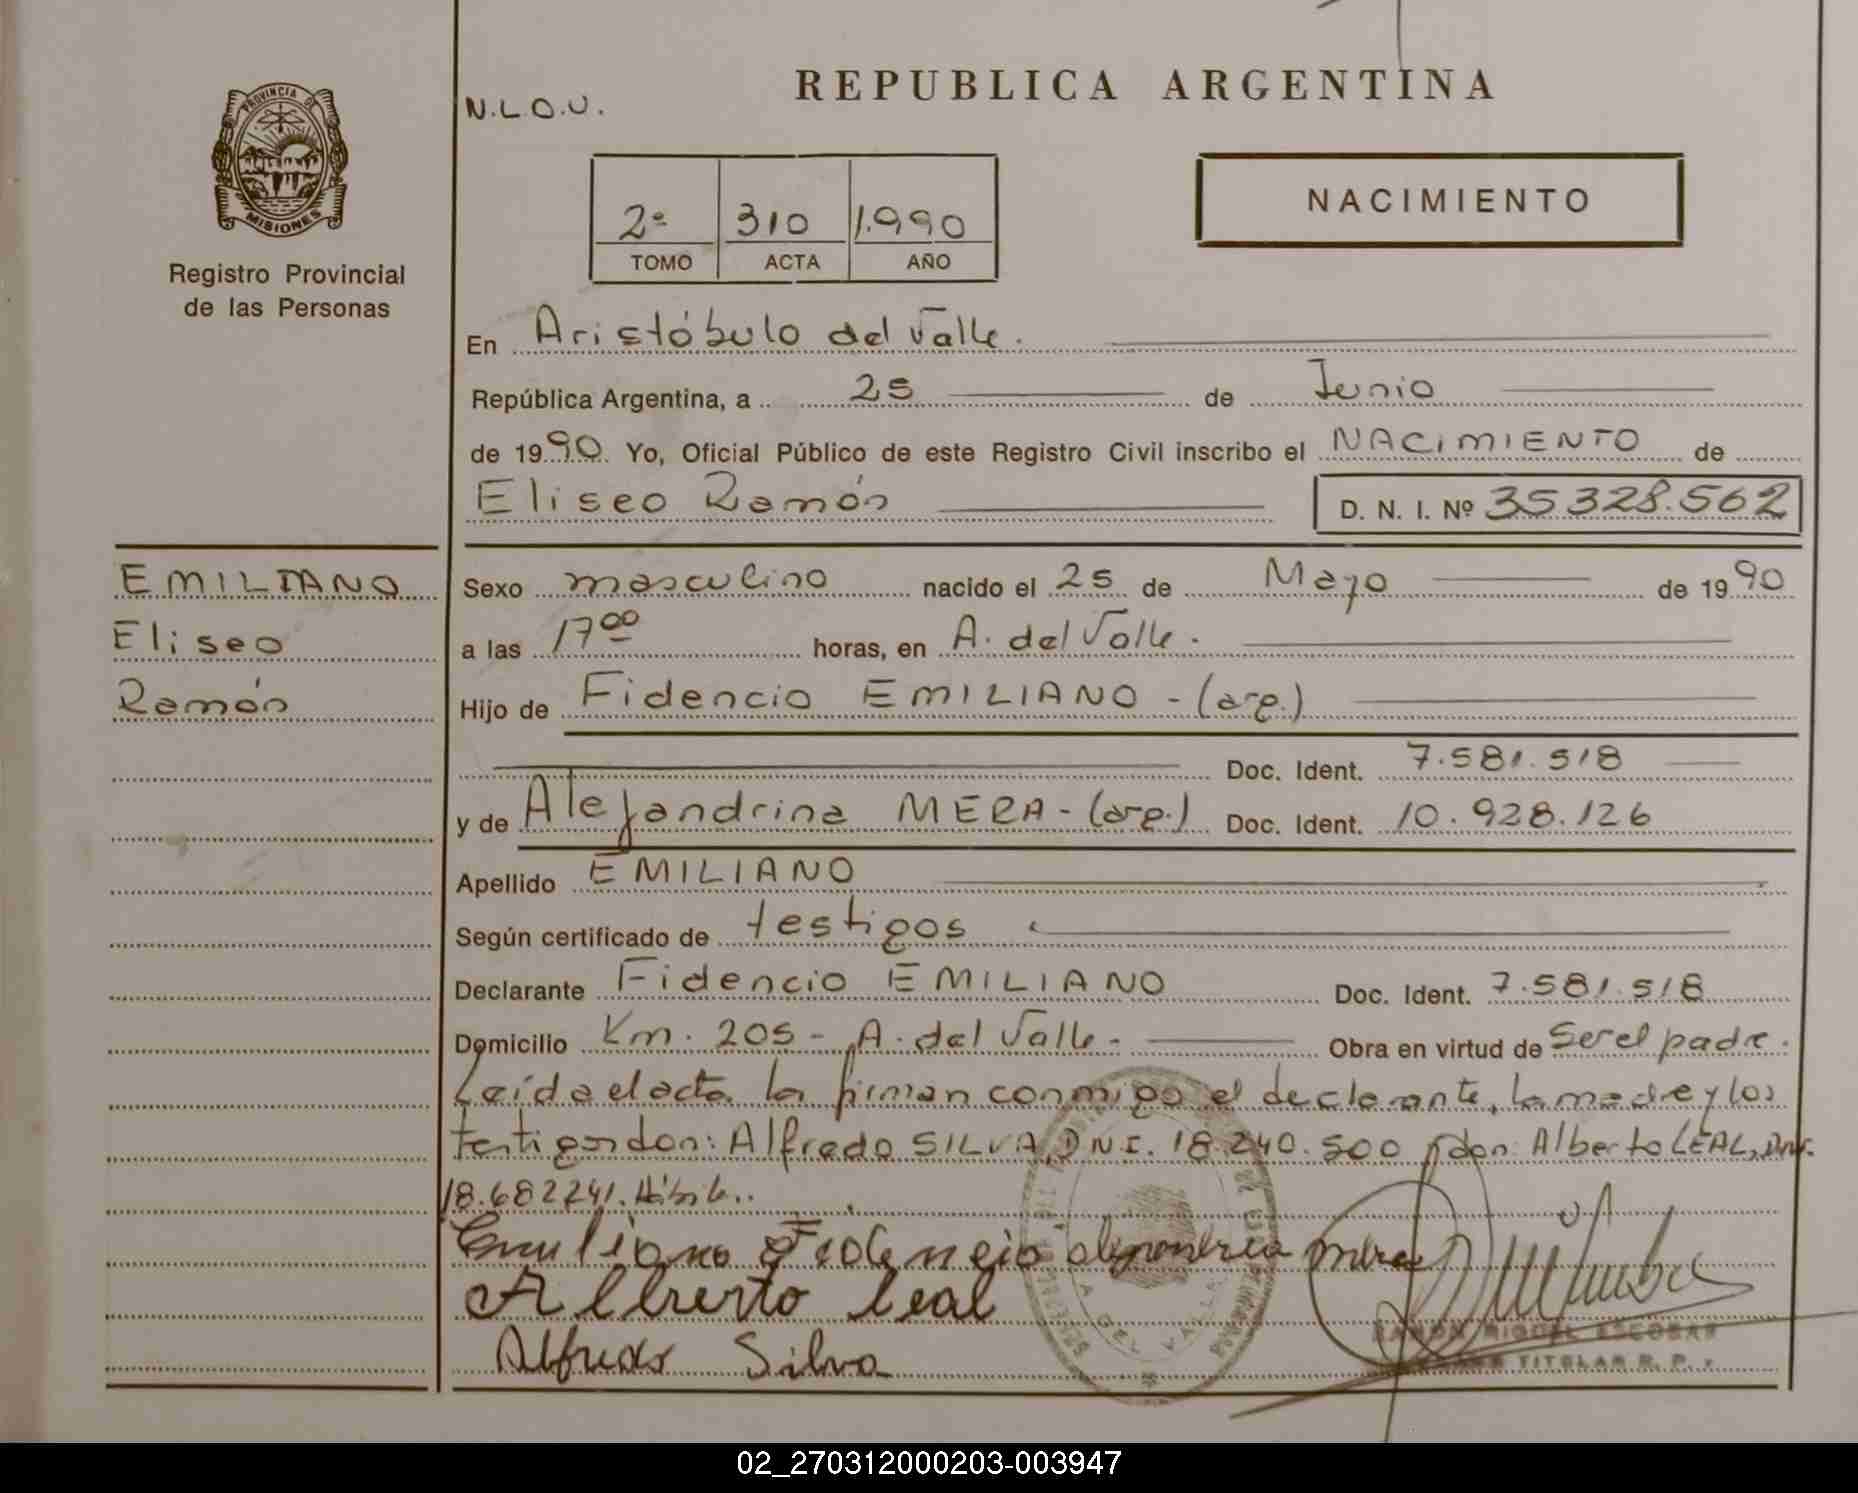 REPUBLICA ARGENTINA
N.L.O.U.
PROVINCIA DE
MISIONES
Registro Provincial
de las Personas
2ª 310 1.990
TOMO ACTA AÑO
NACIMIENTO
En Aristóbulo del Valle.
República Argentina, a 25 de Junio
de 1990. Yo, Oficial Público de este Registro Civil inscribo el NACIMIENTO de
Eliseo Ramón
D. N. I. Nº 35328.562
EMILIANO
Eliseo
Ramón
Sexo masculino nacido el 25 de Mayo de 1990
a las 17 00 horas, en A. del Valle.
Hijo de Fidencio EMILIANO - (arg.)
Doc. Ident. 7.581.518
y de Alejandrina MERA - (arg.) Doc. Ident. 10.928.126
Apellido EMILIANO
Según certificado de testigos
Declarante Fidencio EMILIANO Doc. Ident. 7.581.518
Domicilio Km. 205 - A. del Valle. Obra en virtud de Ser el padre.
Leída el acta la firman conmigo el declarante, la madre y los
testigos don: Alfredo SILVA, D.N.I. 18.240.500 y don: Alberto LEAL, DNI.
18.682241.
Emiliano Fidencio
Alberto Leal
RAMON MIGUEL ESCOBAR
TITULAR R. P.
Alfredo Silva
02_270312000203-003947